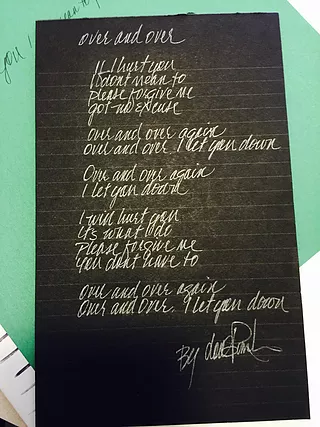 you
over and over
If I hurt you
I dont mean to
please forgive me
got no excuse
over and over again
over and over I let you down
Over and over again
I let you down
I will hurt you
its what I do
Please forgive me
you dont have to
over and over again
Over and Over. I let you down
By